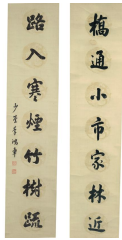 橋通小市家林近
路入寒煙竹樹疏
少荃李鴻章